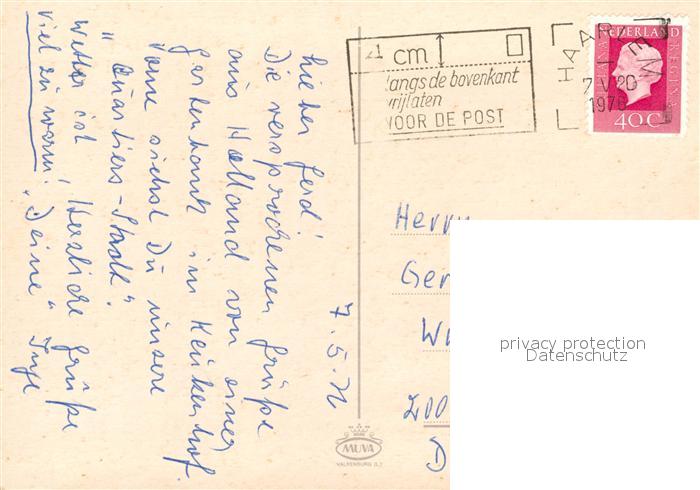 7.5.76
Lieber Gerd!
Die versprochenen Grüße
aus Holland von einer
Gartenbank im Keukenhof.
Vorne siehst Du unsere
"Quartiers-Stadt".
Wetter ist Herzliche Grüße
viel zu warm! "Deine" Inge
1 cm
langs de bovenkant
vrijlaten
VOOR DE POST
HAARLEM
7 V 20
1976
JULIANA REGINA
NEDERLAND
40 C
Herrn
Ger
W
200
D
MUVA
VALKENBURG (L.)
privacy protection
Datenschutz